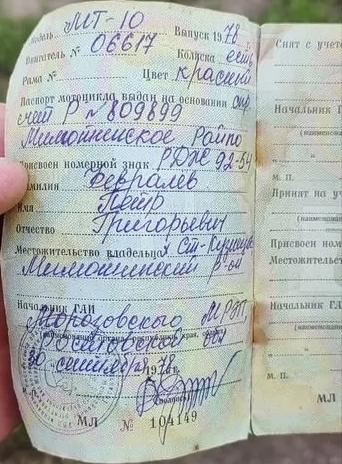 Модель МТ-10 Выпуск 1978 г.
Двигатель № 06617 Коляска есть
Рама № Цвет красный
Паспорт мотоцикла выдан на основании
счет Р № 809899
Милютинское Райпо
Присвоен номерной знак РДЖ 92-54
Фамилия Февралев
Имя Петр
Отчество Григорьевич
Местожительство владельца Ст-
Милютинский р-он
Начальник ГАИ
Морозовского МРЭП
Ростовской обл
30 сентября 1978 г.
МЛ № 104149
Снят с учета
Начальник ГАИ
М. П.
Принят на
Присвоен номерной
Местожительство
Начальник ГАИ
М. П.
МЛ